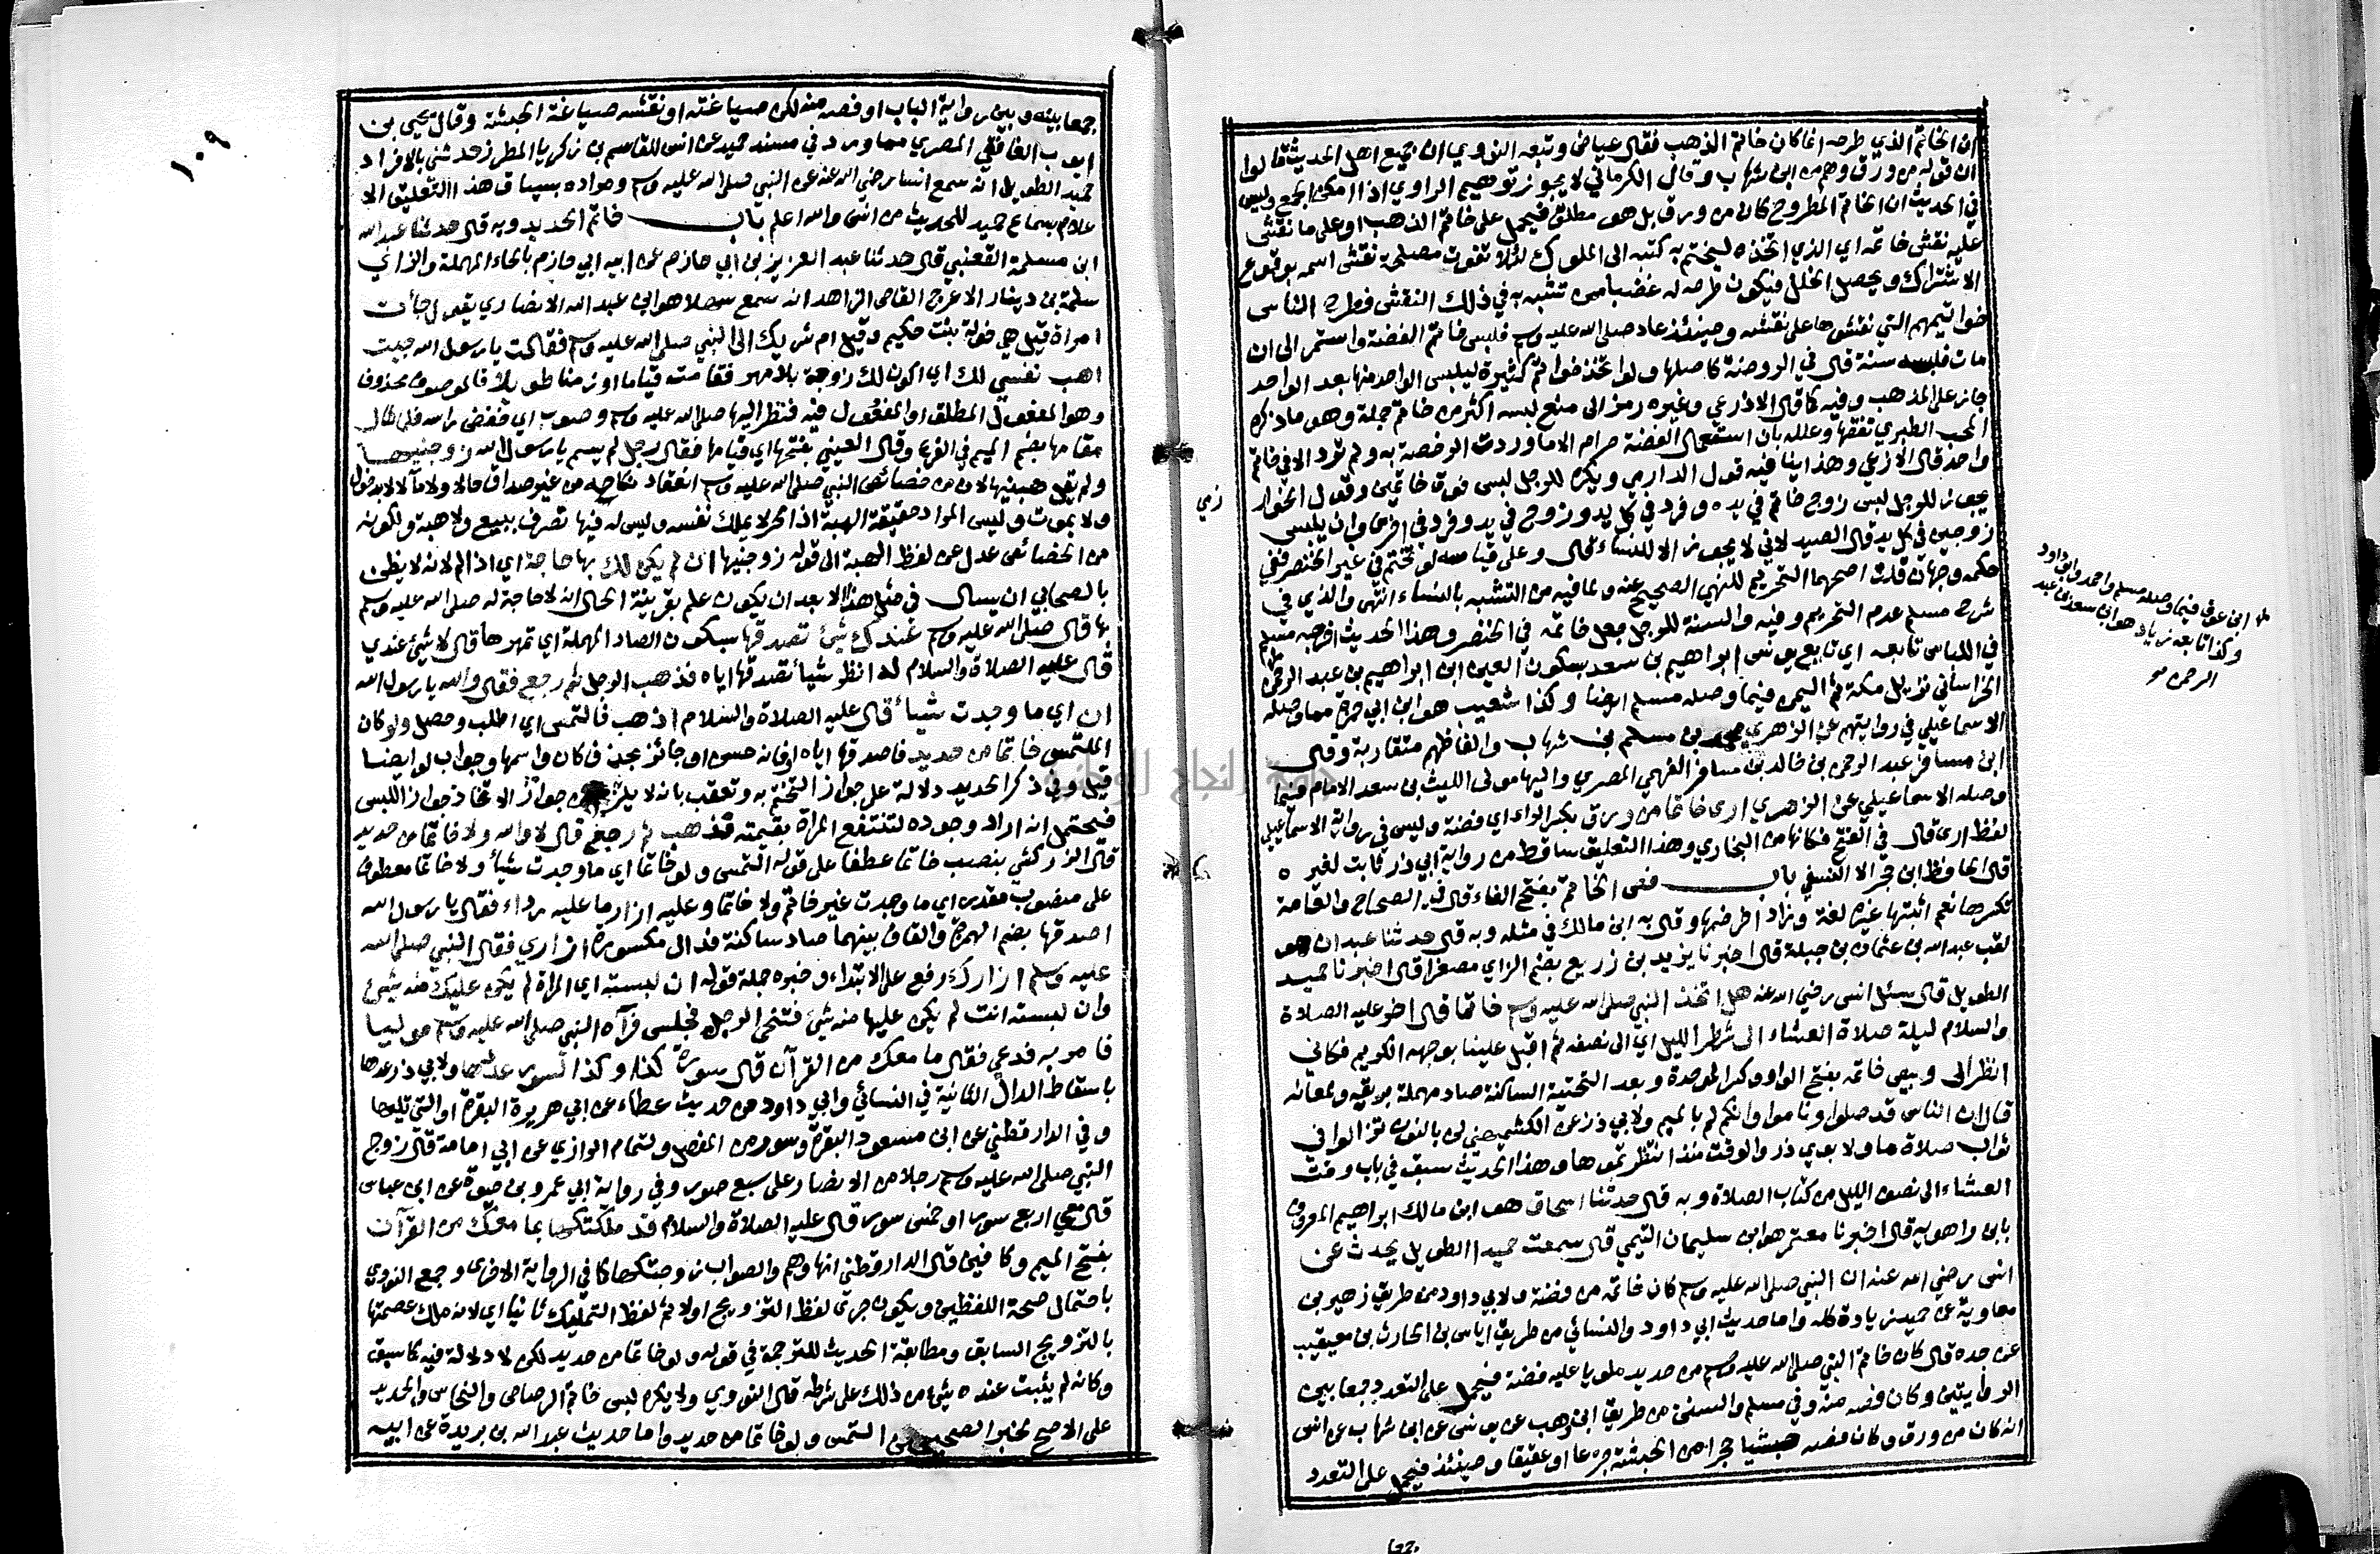 ان الخاتم الذي طرحه انما كان خاتم الذهب فقال عياض وتبعه النووي ان جميع اهل الحديث قالوا
ان قوله من ورق وهم من ابن شهاب وقال الكرماني لا يجوز توهيم الراوي اذا امكن الجمع وليس
في الحديث ان الخاتم المطروح كان من ورق بل هو مطلق فيحمل على خاتم الذهب او على ما نقش
عليه نقش خاتمه اي الذي اتخذه ليختم به كتبه الى الملوك لئلا تفوت مصلحة نقش اسمه بوقوع
الاشتراك ويحصل الخلل فيكون طرحه له غضبا ممن تشبه به في ذلك النقش فطرح الناس
خواتيمهم التي نقشوها على نقشه وحينئذ عاد صلى الله عليه وسلم فلبس خاتم الفضة واستمر الى ان
مات فلبسه سنة قال في الروضة كاصلها ولو اتخذ خواتم كثيرة ليلبس الواحد منها بعد الواحد
جاز على المذهب وفيه كما قال الاذرعي وغيره رمز الى منع لبسه اكثر من خاتم جملة وهو ما ذكره
المحب الطبري تفقها وعلله بان استعمال الفضة حرام الا ما وردت الرخصة به ولم ترد الا في خاتم
واحد قال الاذرعي وهذا ينافيه قول الدارمي ويكره للرجل لبس فوق خاتمين وقول الخوار
زمي
يجوز للرجل لبس زوج خاتم في يده وفرد في كل يد وزوج في يد وفرد في اخرى وان يلبس
زوجين في كل يد قال الصيدلاني لا يجوز الا للنساء قال وعلى قياسه لو تختم في غير الخنصر ففي
حكمه وجهان قلت اصحهما التحريم للنهي الصحيح عنه ولما فيه من التشبه بالنساء انتهى والذي في
شرح مسلم عدم التحريم وفيه والسنة للرجل جعل خاتمه في الخنصر وهذا الحديث اخرجه مسلم
في اللباس تابعه اي تابع يونس ابراهيم بن سعد بسكون العين ابن ابراهيم بن عبد الرحمن
ابن عوف فيما وصله مسلم واحمد وابو داود
وكذا تابعه زياد هو ابن سعد بن عبد
الرحمن
الخراساني نزيل مكة ثم اليمن فيما وصله مسلم ايضا وكذا شعيب هو ابن ابي حمزة مما وصله
الاسماعيلي في روايتهم عن الزهري محمد بن مسلم بن شهاب والفاظهم متقاربة وقال
ابن مسافر عبد الرحمن بن خالد بن مسافر الفهمي المصري واليها مولى الليث بن سعد الامام فيما
وصله الاسماعيلي عن الزهري ارى خاتما من ورق بكسر الراء اي فضة وليس في رواية الاسماعيلي
لفظ ارى قال في الفتح فكانها من البخاري وهذا التعليق ساقط من رواية ابي ذر ثابت لغيره
قال الحافظ ابن حجر الا النسفي باب فص الخاتم بفتح الفاء قال في الصحاح والعامة
تكسرها نعم اثبتها غيره لغة وزاد اخر ضمها وقال به ابن مالك في مثله وبه قال حدثنا عبدان هو
لقب عبد الله بن عثمان بن جبلة قال اخبرنا يزيد بن زريع بضم الزاي مصغرا قال اخبرنا حميد
الطويل قال سئل انس رضي الله عنه هل اتخذ النبي صلى الله عليه وسلم خاتما قال اخر عليه الصلاة
والسلام ليلة صلاة العشاء الى شطر الليل اي الى نصفه ثم اقبل علينا بوجهه الكريم فكاني
انظر الى وبيص خاتمه بفتح الواو وكسر الموحدة وبعد التحتية الساكنة صاد مهملة بريقه ولمعانه
قال ان الناس قد صلوا وناموا وانكم لم بالميم ولابي ذر عن الكشميهني لن بالنون تزالوا في
ثواب صلاة ما ولابي ذر والوقت منذ انتظرتموها وهذا الحديث سبق في باب وقت
العشاء الى نصف الليل من كتاب الصلاة وبه قال حدثنا اسحاق هو ابن مالك ابراهيم المعروف
بابن راهويه قال اخبرنا معتمر هو ابن سليمان التيمي قال سمعت حميدا الطويل يحدث عن
انس رضي الله عنه ان النبي صلى الله عليه وسلم كان خاتمه من فضة ولابي داود من طريق زهير بن
معاوية عن حميد زيادة كله واما حديث ابي داود والنسائي من طريق اياس بن الحارث بن معيقيب
عن جده قال كان خاتم النبي صلى الله عليه وسلم من حديد ملويا عليه فضة فيحمل على التعدد جمعا بين
الروايتين وكان فصه منه وفي مسلم والسنن من طريق ابن وهب عن يونس عن ابن شهاب عن انس
انه كان من ورق وكان فصه حبشيا حجرا من الحبشة جزعا او عقيقا وحينئذ فيحمل على التعدد
جمعا
١٠٩
جمعا بينه وبين رواية الباب او فصه منه لكن صياغته او نقشه صياغة الحبشة وقال يحيى بن
ايوب الغافقي المصري مما ورد في مسند حميد عن انس للقاسم بن زكريا المطرز حدثني بالافراد
حميد الطويل انه سمع انسا رضي الله عنه عن النبي صلى الله عليه وسلم ومراده بسياق هذا التعليق الا
علام بسماع حميد للحديث من انس والله اعلم باب خاتم الحديد وبه قال حدثنا عبد الله
ابن مسلمة القعنبي قال حدثنا عبد العزيز بن ابي حازم عن ابيه ابي حازم بالحاء المهملة والزاي
سلمة بن دينار الاعرج القاص الزاهد انه سمع سهلا هو ابن عبد الله الانصاري يقول جاءت
امراة قيل هي خولة بنت حكيم وقيل ام شريك الى النبي صلى الله عليه وسلم فقالت يا رسول الله جيت
اهب نفسي لك اي اكون لك زوجة بلا مهر فقامت قياما او زمنا طويلا فالموصوف محذوف
وهو المفعول المطلق او المفعول فيه فنظر اليها صلى الله عليه وسلم وصوب اي خفض راسه فلما طال
مقامها بضم الميم في الفرع وقال العيني بفتحها اي قيامها فقال رجل لم يسم يا رسول الله زوجنيها
ولم يقل هبنيها لان من خصائص النبي صلى الله عليه وسلم انعقاد نكاحه من غير صداق حالا ولا مآلا لا بدخول
ولا بموت وليس المراد حقيقة الهبة اذ الحر لا يملك نفسه وليس له فيها تصرف ببيع ولا هبة ولكونه
من الخصائص عدل عن لفظ الهبة الى قوله زوجنيها ان لم يكن لك بها حاجة اي اذا لم لانه لا يظن
بالصحابي ان يسال في مثل هذا الا بعد ان يكون علم بقرينة الحال انه لا حاجة له صلى الله عليه وسلم
بها قال صلى الله عليه وسلم عندك شيء تصدقها بسكون الصاد المهملة اي تمهرها قال لا شيء عندي
قال عليه الصلاة والسلام له انظر شيأ تصدقها اياه فذهب الرجل ثم رجع فقال والله يا رسول الله
ان اي ما وجدت شيأ قال عليه الصلاة والسلام اذهب فالتمس اي اطلب وحصل ولو كان
الملتمس خاتما من حديد فاصدقها اياه فانه حسن او جائز بحذف كان واسمها وجواب لو ايضا
قيل وفي ذكر الحديد دلالة على جواز التختم به وتعقب بانه لا يلزم من جواز الاتخاذ جواز اللبس
فيحتمل انه اراد وجوده لتنتفع المراة بقيمته فذهب ثم رجع قال لا والله ولا خاتما من حديد
قال الزركشي بنصب خاتما عطفا على قوله التمس ولو خاتما اي ما وجدت شيأ ولا خاتما معطوف
على منصوب مقدر اي ما وجدت غير خاتم ولا خاتما وعليه ازار ما عليه رداء فقال يا رسول الله
اصدقها بضم الهمزة والقاف بينهما صاد ساكنة فدال مكسورة ازاري فقال النبي صلى الله
عليه وسلم ازارك رفع على الابتداء وخبره جملة قوله ان لبسته اي المراة لم يكن عليك منه شيء
وان لبسته انت لم يكن عليها منه شيء فتنحى الرجل فجلس فرآه النبي صلى الله عليه وسلم موليا
فامر به فدعي فقال ما معك من القرآن قال سورة كذا وكذا لسور عددها ولابي ذر عدها
باسقاط الدال الثانية في النسائي وابي داود من حديث عطاء عن ابي هريرة البقرة او التي تليها
وفي الدارقطني عن ابن مسعود البقرة وسور من المفصل ولتمام الرازي عن ابي امامة قال زوج
النبي صلى الله عليه وسلم رجلا من الانصار على سبع سور وفي رواية ابي عمرو بن حيوة عن ابن عباس
قال معي اربع سور او خمس سور قال عليه الصلاة والسلام قد ملكتكها بما معك من القرآن
بفتح الميم وكافين قال الدارقطني انها وهم والصواب زوجتكها كما في الرواية الاخرى وجمع النووي
باحتمال صحة اللفظين ويكون جرى لفظ التزويج اولا ثم لفظ التمليك ثانيا اي لانه ملك عصمتها
بالتزويج السابق ومطابقة الحديث للترجمة في قوله ولو خاتما من حديد لكن لا دلالة فيه كما سبق
وكانه لم يثبت عنده شيء من ذلك على شرطه قال النووي ولا يكره لبس خاتم الرصاص والنحاس والحديد
على الاصح لخبر الصحيحين التمس ولو خاتما من حديد واما حديث عبد الله بن بريدة عن ابيه